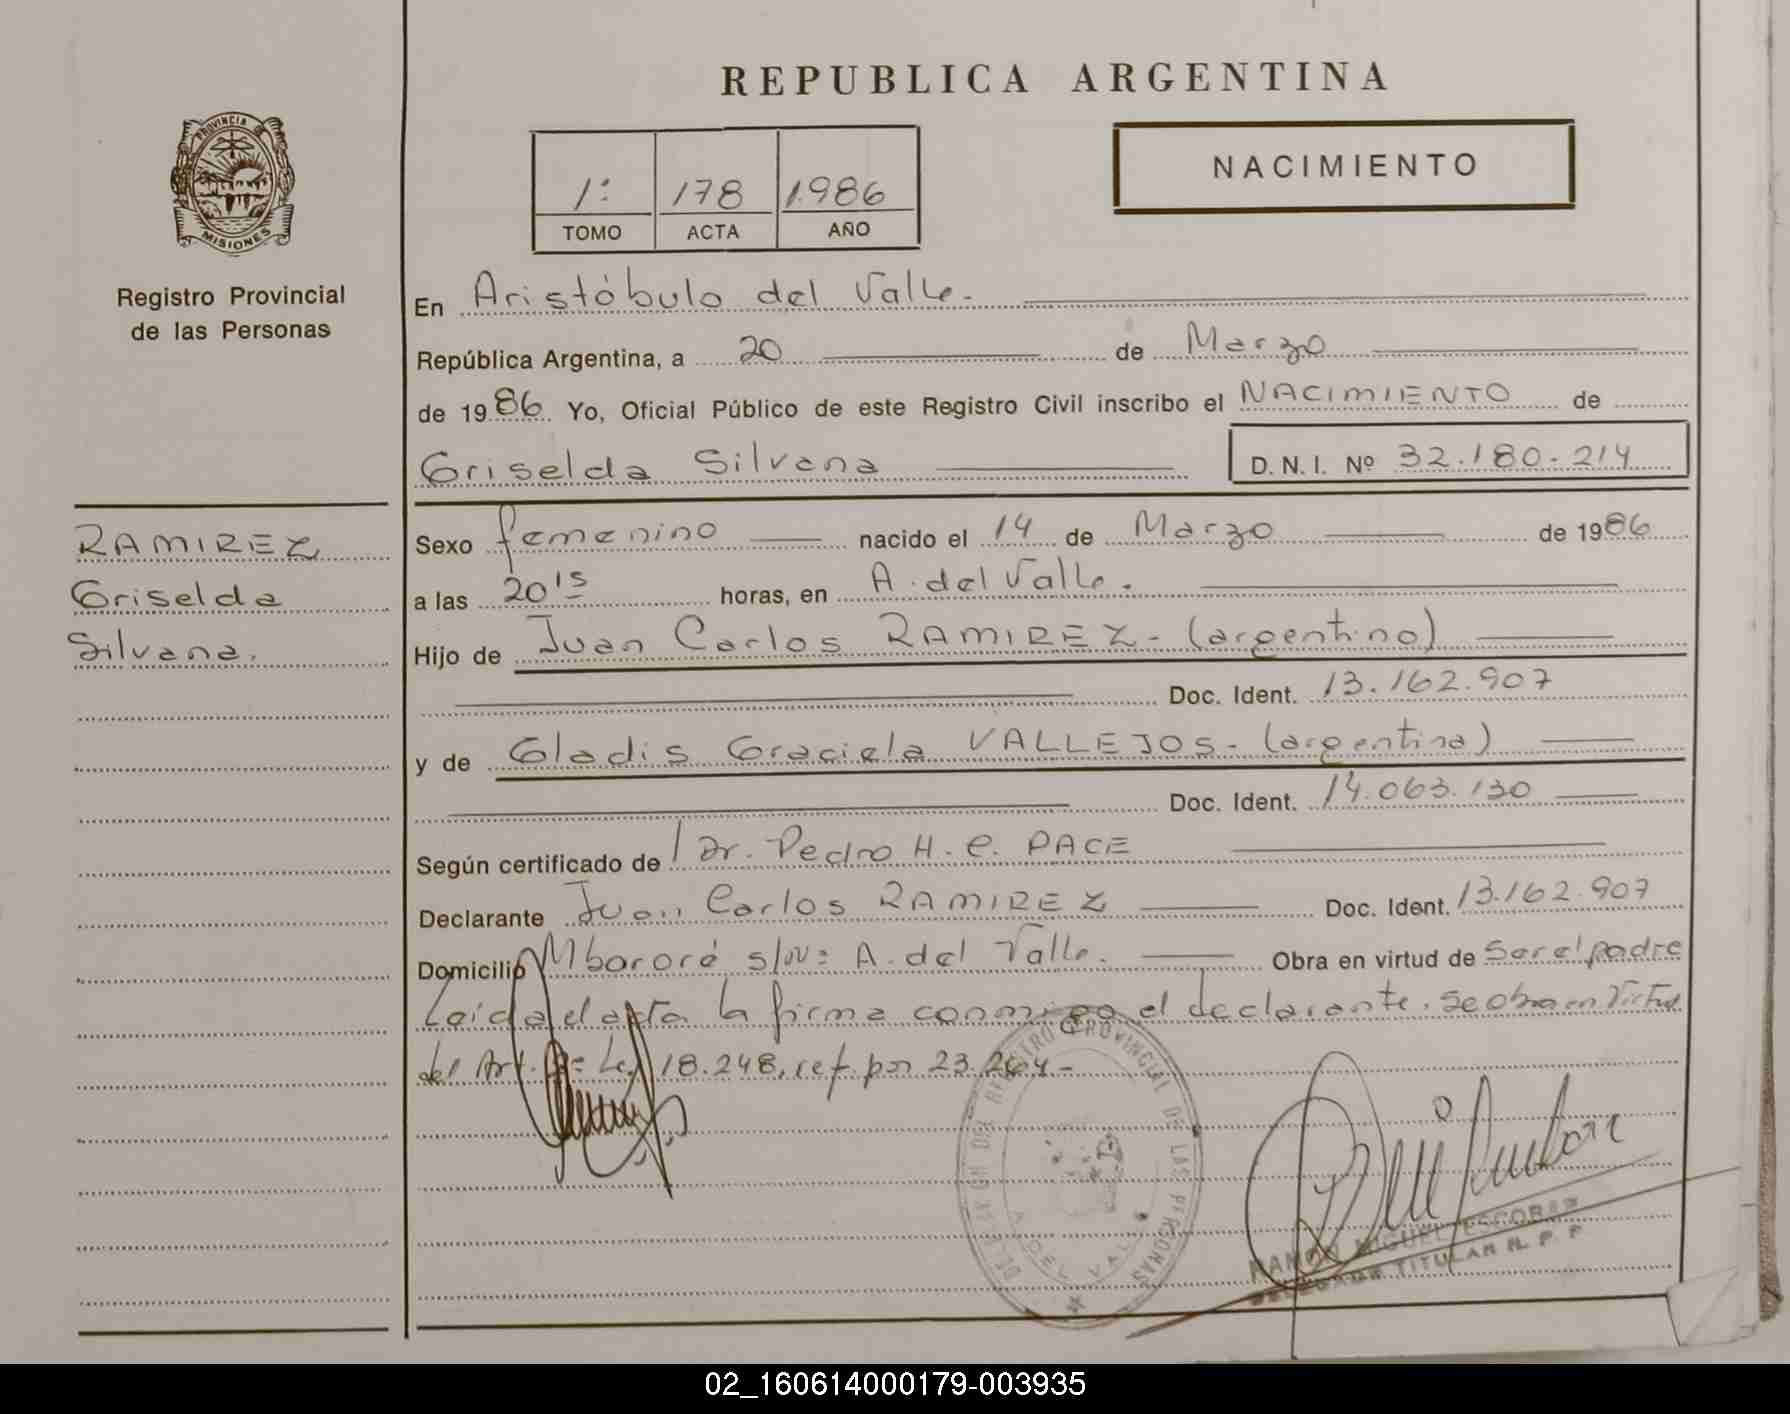 REPUBLICA ARGENTINA
PROVINCIA DE
MISIONES
Registro Provincial
de las Personas
1º 178 1.986
TOMO ACTA AÑO
NACIMIENTO
En Aristóbulo del Valle.
República Argentina, a 20 de Marzo
de 1986 Yo, Oficial Público de este Registro Civil inscribo el NACIMIENTO de
Griselda Silvana D.N.I. Nº 32.180.214
RAMIREZ
Griselda
Silvana.
Sexo femenino nacido el 14 de Marzo de 1986
a las 20 15 horas, en A. del Valle.
Hijo de Juan Carlos RAMIREZ - (argentino)
Doc. Ident. 13.162.907
y de Gladis Graciela VALLEJOS - (argentina)
Doc. Ident. 14.063.130
Según certificado de Dr. Pedro H. C. PACE
Declarante Juan Carlos RAMIREZ Doc. Ident. 13.162.907
Domicilio Mbororé s/Nº A. del Valle. Obra en virtud de Ser el padre
Leída el acta la firma conmigo el declarante. Se obra en Virtud
del Art. Ley 18.248, ref. por 23.264 -
DELEGACION DEL REGISTRO PROVINCIAL DE LAS PERSONAS
A. DEL VALLE
RAMON MIGUEL ESCOBAR
DELEGADO TITULAR R. P. P.
02_160614000179-003935